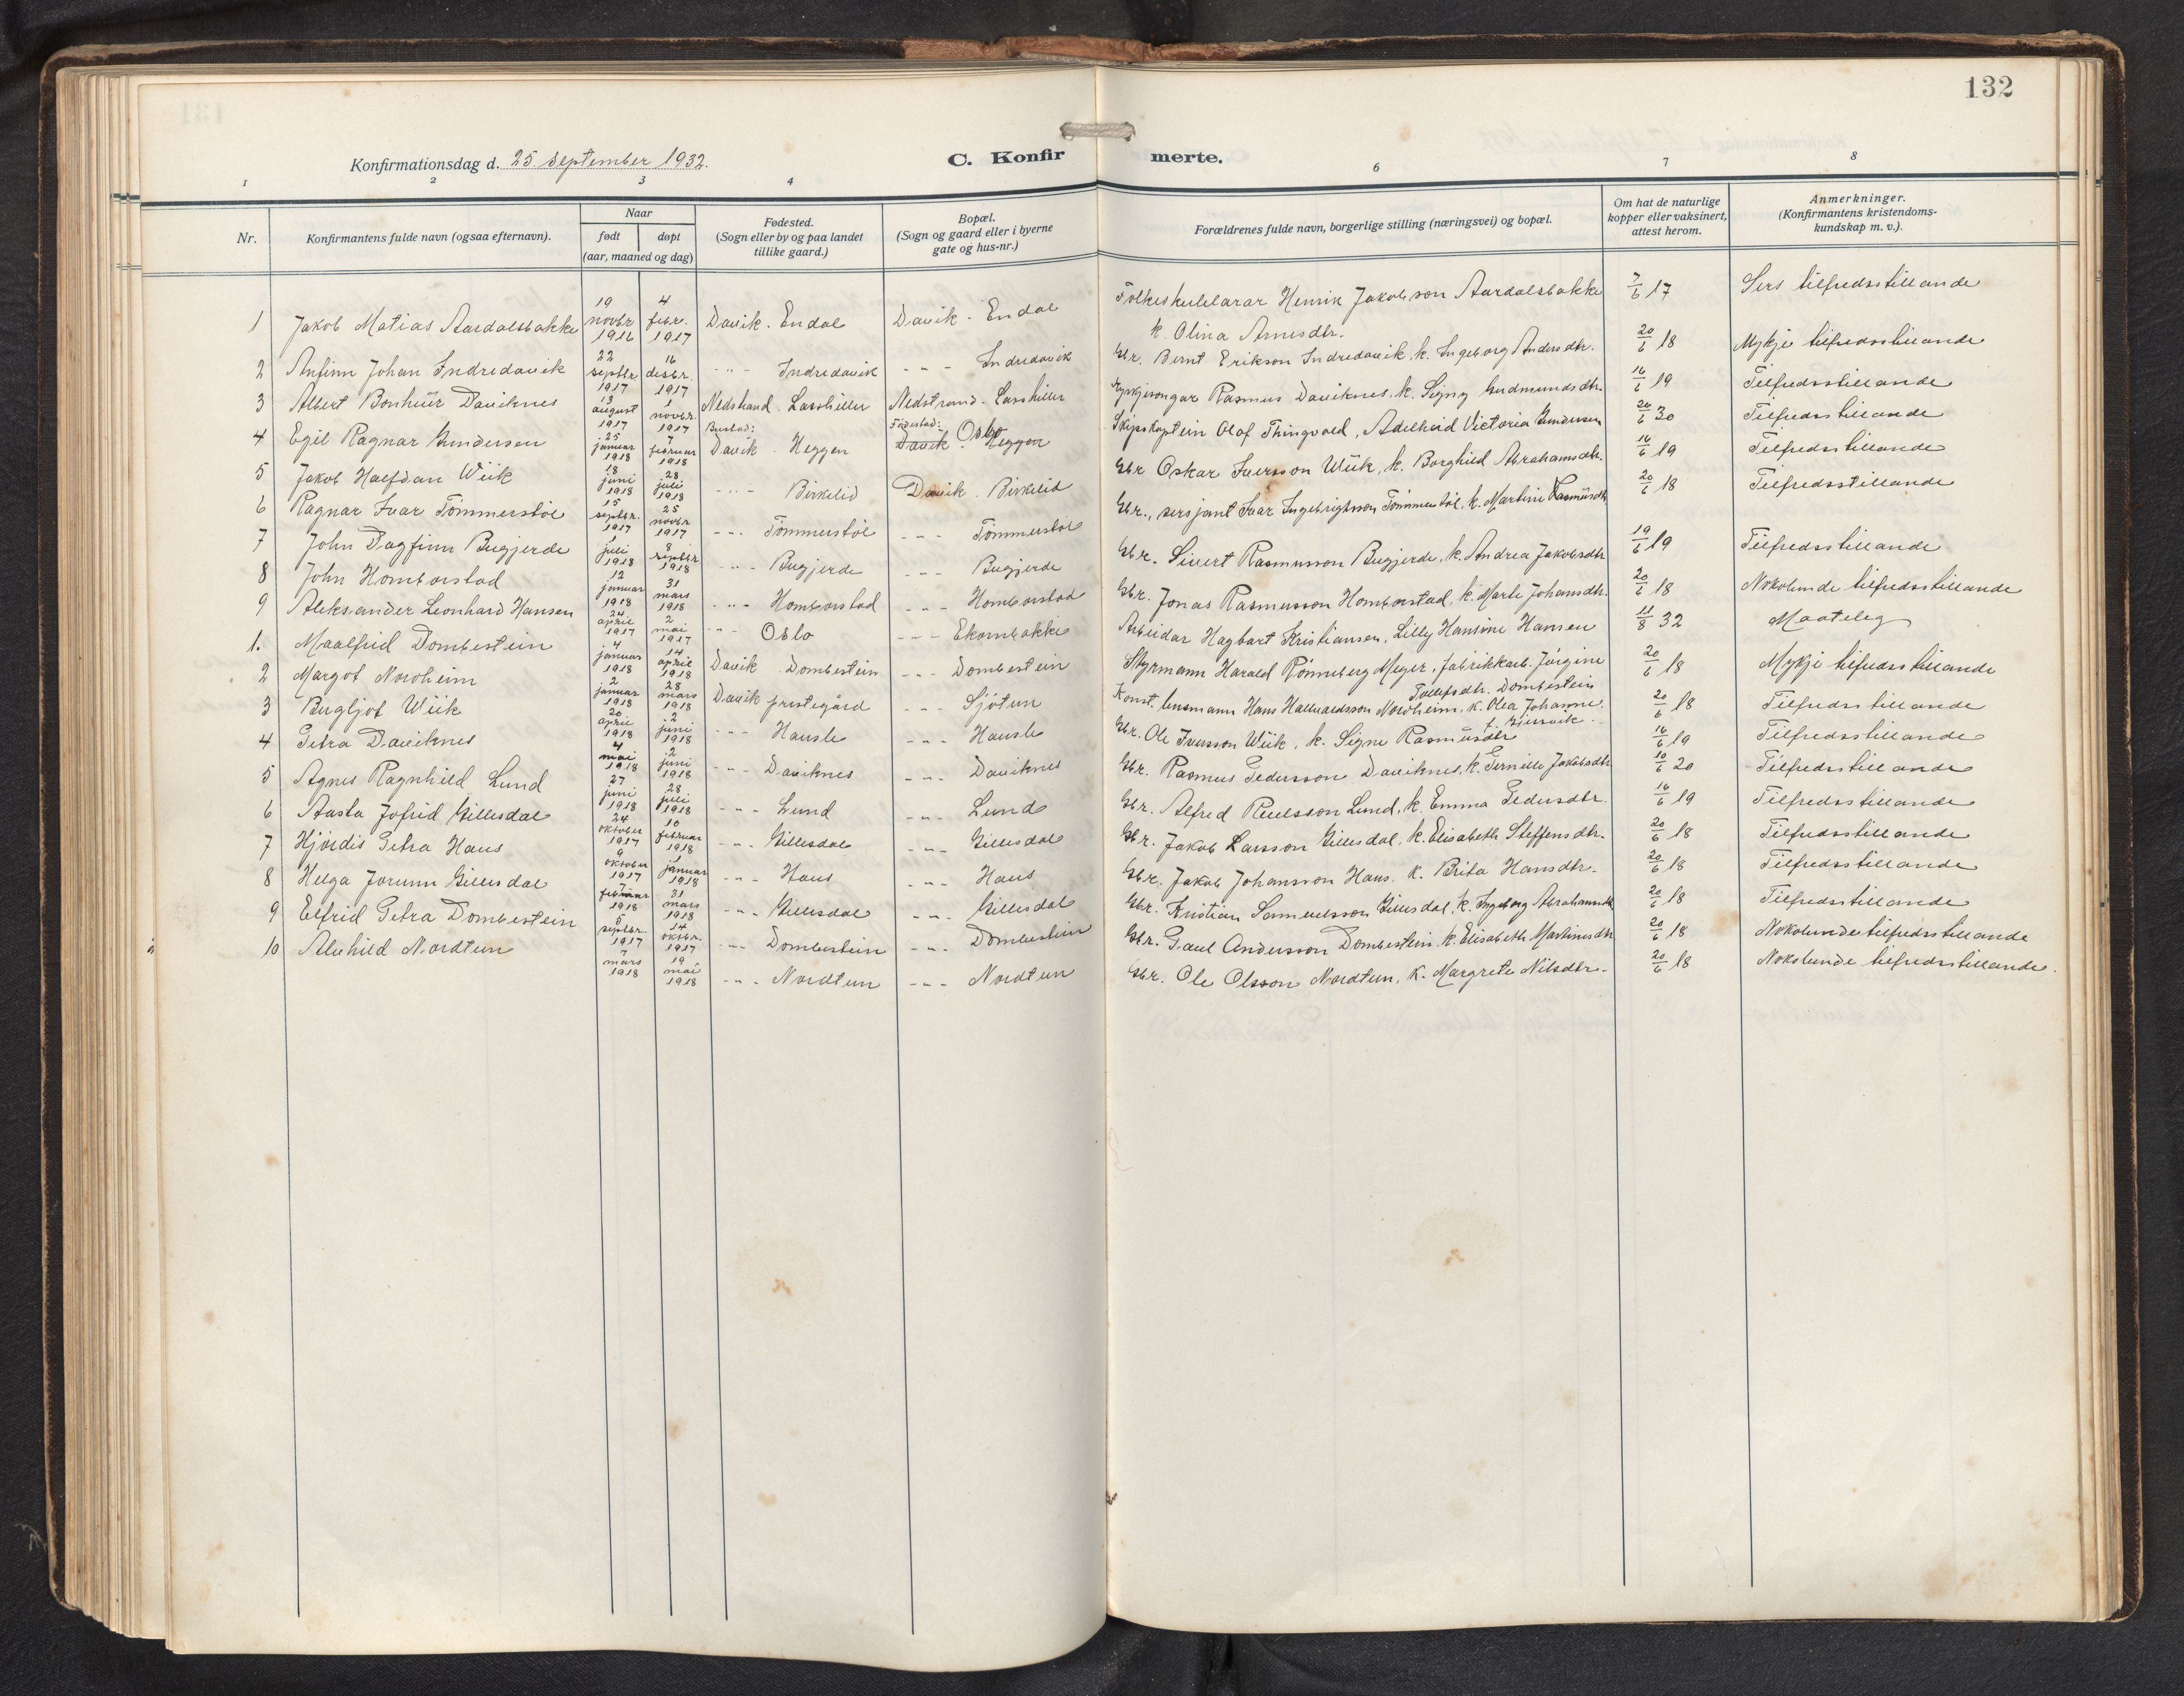 132
Konfirmationsdag d. 25 september 1932.
C. Konfirmerte.
1 2 3 4 6 7 8
Nr.
Konfirmantens fulde navn (ogsaa efternavn).
Naar
født døpt
(aar, maaned og dag)
Fødested.
(Sogn eller by og paa landet
tillike gaard.)
Bopæl.
(Sogn og gaard eller i byerne
gate og hus-nr.)
Forældrenes fulde navn, borgerlige stilling (næringsvei) og bopæl.
Om hat de naturlige
kopper eller vaksinert,
attest herom.
Anmerkninger.
(Konfirmantens kristendoms-
kundskap m. v.).
1 Jakob Matias Aardalsbakke 19 novbr 1916 4 febr. 1917 Davik. Endal Davik - Endal Folkeskulelærar Henrik Jakobson Aardalsbakke k. Olina Arnesdtr. 7/6 17 Sers tilfredsstillande
2 Anfinn Johan Indredavik 22 septbr. 1917 16 desbr. 1917 - " - Indredavik - - - Indredavik Gbr. Bernt Erikson Indredavik, k. Ingeborg Andersdtr. 20/6 18 Mykje tilfredsstillande
3 Albert Bonhür Daviknes 13 august 1917 1 novbr. 1917 Nedstrand. Lasshiller Nedstrand. Lasshiller Kyrkjesongar Rasmus Daviknes, k. Signy Gudmundsdtr. 16/6 19 Tilfredsstillande
4 Egil Ragnar Gundersen 25 januar 1918 7 februar 1918 Bustad: Davik. Heggen Fødestad: Oslo Davik. Heggen Skipskaptein Olaf Thingvold, Adelheid Victoria Gundersen 26/6 30 Tilfredsstillande
5 Jakob Halfdan Wiik 18 juni 1918 28 juli 1918 - " - Birkelid Davik. Birkelid Gbr Oskar Iversson Wiik, k. Borghild Abrahamsdtr. 16/6 19 Tilfredsstillande
6 Ragnar Ivar Tömmerstöl 15 septbr. 1917 25 novbr 1917 - - - Tömmerstöl - - - Tömmerstöl Gbr., sersjant Ivar Ingebrigtsson Tömmerstöl, k. Martine Rasmüsdtr 20/6 18 Tilfredsstillande
7 John Dagfinn Bugjerde 1 juli 1918 8 septbr 1918 - - - Bugjerde - - - Bugjerde Gbr. Sivert Rasmusson Bugjerde, k. Andrea Jakobsdtr 19/6 19 Tilfredsstillande
8 John Homborstad 12 januar 1918 31 mars 1918 - " - Homborstad - - - Homborstad Gbr. Jonas Rasmusson Homborstad, k. Marte Johansdtr. 20/6 18 Nokolunde tilfredsstillande
9 Aleksander Leonhard Hansen 24 april 1917 2 mai 1917 - " - Oslo - - - Ekornbakke Arbeidar Hagbart Kristiansen, Lilly Hansine Hansen 11/8 32 Maateleg
1. Maalfrid Dombestein 4 januar 1918 14 april 1918 Davik Dombestein - - - Dombestein Styrmann Harald Rönneberg Meyer, fabrikkarb. Jörgine Tollefsdtr. Dombestein 20/6 18 Mykje tilfredsstillande
2 Margot Nordheim 2 januar 1918 28 mars 1918 Davik prestegård - - - Sjötun Konst. lensmann Hans Hallvardsson Nordheim, k. Olea Johanne 20/6 18 Tilfredsstillande
3 Bergljot Wiik 20 april 1918 2 juni 1918 - - - Hausle - - - Hausle Gbr. Ole Iversson Wiik, k. Signe Rasmüsdtr 16/6 19 Tilfredsstillande
4 Petra Daviknes 4 mai 1918 2 juni 1918 - - - Daviknes - - - Daviknes Gbr. Rasmus Pedersson Daviknes, k. Pernille Jakobsdtr 10/6 20 Tilfredsstillande
5 Agnes Ragnhild Lund 27 juni 1918 28 juli 1918 - - - Lund - - - Lund Gbr. Alfred Reulsson Lund, k. Emma Pedersdtr. 16/6 19 Tilfredsstillande
6 Aasta Jofrid Gillesdal 24 oktober 1917 10 februar 1918 - - - Gillesdal - - - Gillesdal Gbr. Jakob Larsson Gillesdal, k. Elisabeth Steffensdtr. 20/6 18 Tilfredsstillande
7 Hjördis Petra Haus 9 oktober 1917 1 januar 1918 - - - Haus - - - Haus Gbr. Jakob Johansson Haus. K. Brita Hansdtr. 20/6 18 Tilfredsstillande
8 Helga Jorunn Gillesdal 7 februar 1918 31 mars 1918 - - - Gillesdal - - - Gillesdal Gbr. Kristian Samuelsson Gillesdal, k. Ingeborg Abrahamsdtr 20/6 18 Tilfredsstillande
9 Elfrid Petra Dombestein 5 septbr. 1917 14 oktbr. 1917 - - - Dombestein - - - Dombestein Gbr. Paul Andersson Dombestein, k. Elisabeth Martinusdtr 20/6 18 Nokolunde tilfredsstillande
10 Alvhild Nordtun 7 mars 1918 19 mai 1918 - - - Nordtun - - - Nordtun Gbr. Ole Olsson Nordtun, K. Margrete Nilsdtr. 20/6 18 Nokolunde tilfredsstillande.